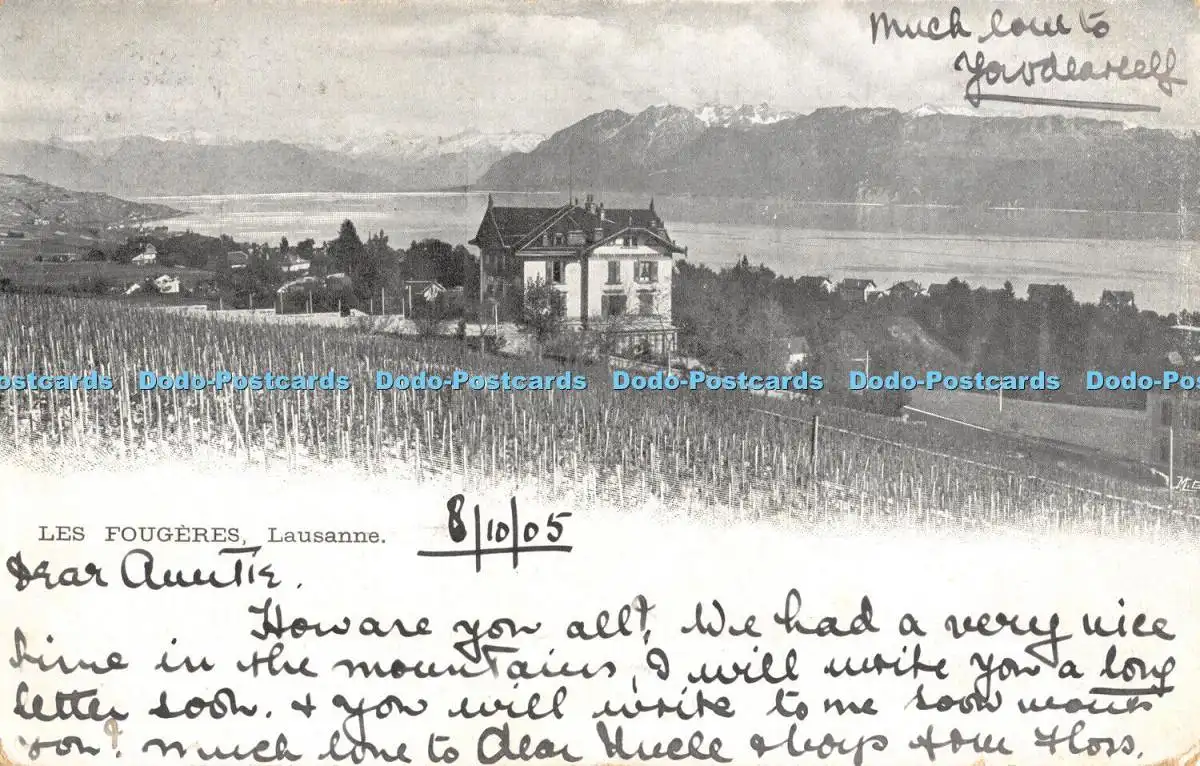 Much love to
Yourdearself
Dodo-Postcards Dodo-Postcards Dodo-Postcards Dodo-Postcards Dodo-Postcards Dodo-Postcards
LES FOUGÈRES, Lausanne.
8/10/05
Dear Auntie.
How are you all? We had a very nice
time in the mountains, I will write you a long
letter soon. & you will write to me soon
you? Much love to Dear Uncle & boys from Floss.